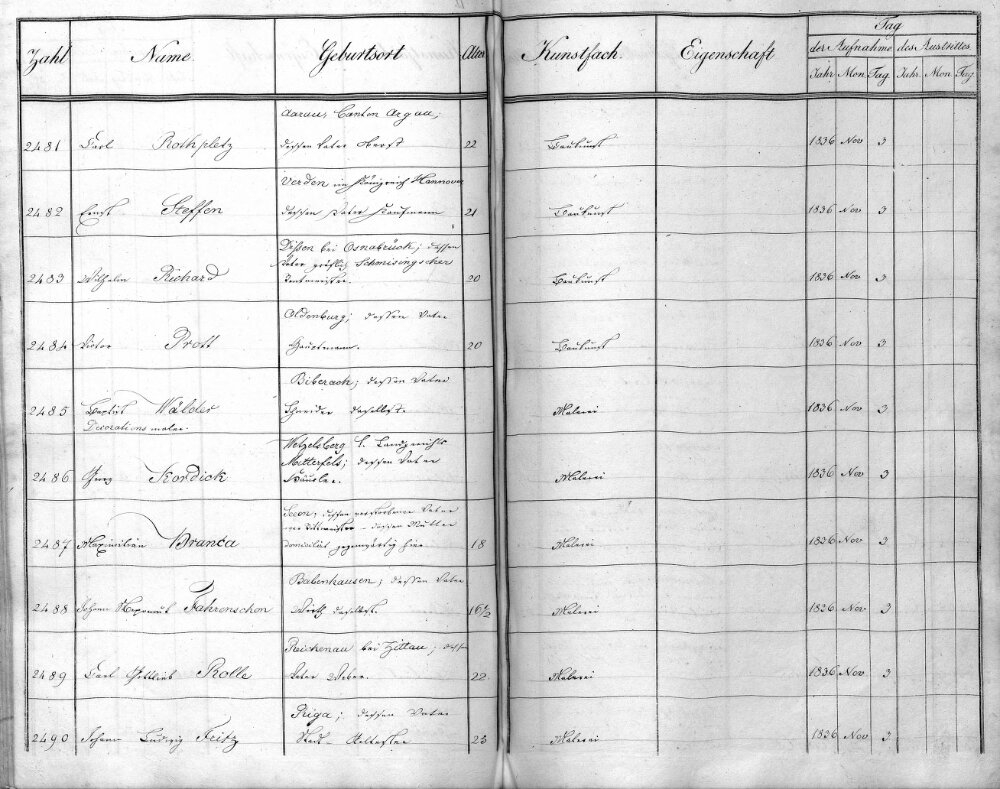 Tag
Zahl Name. Geburtsort Alter Kunstfach. Eigenschaft der Aufnahme des Austrittes.
Jahr Mon. Tag Jahr. Mon. Tag.
Aarau, Canton Argau;
2481 Carl Rothpletz dessen Vater Oberst 22 Baukunst 1836 Nov 3
Verden im Königreich Hannover
2482 Ernst Steffen dessen Vater Kaufmann 21 Baukunst 1836 Nov 3
Dissen bei Osnabrück; dessen
Vater gräflich Schmisingscher
2483 Wilhelm Richard Rentmeister. 20 Baukunst 1836 Nov 3
Oldenburg; dessen Vater
2484 Victor Prott Hauptmann. 20 Baukunst 1836 Nov 3
Biberach; dessen Vater
2485 Wälder Schneider daselbst Malerei 1836 Nov 3
Decorationsmaler.
Wetzelsberg k. Landgerichts
Mitterfels; dessen Vater
2486 Georg Kordick Häusler. Malerei 1836 Nov 3
dessen verstorbener Vater
Rittmeister – dessen Mutter
2487 Maximilian Branca domicilirt gegenwärtig hier. 18 Malerei 1836 Nov 3
Babenhausen; dessen Vater
2488 Johann Nepomuk Fahrenschon Wirth daselbst. 16 1/2 Malerei 1836 Nov 3
Reichenau bei Zittau; dessen
2489 Carl Gottlieb Rolle Vater Weber. 22 Malerei 1836 Nov 3
Riga; dessen Vater
2490 Johann Ludwig Fritz Stadt-Aeltester 23 Malerei 1836 Nov 3